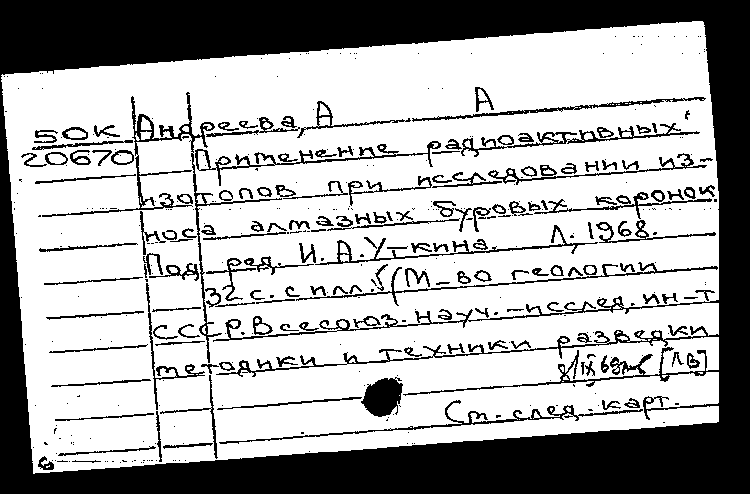 А
50К Андреева, А
20670 Применение радиоактивных
изотопов при исследовании из-
носа алмазных буровых коронок
Под ред. И. А. Уткина. Л., 1968.
32 с. с илл. (М-во геологии
СССР. Всесоюз. науч.-исслед. ин-т
методики и техники разведки
8/IX 69 [ЛВ]
См. след. карт.